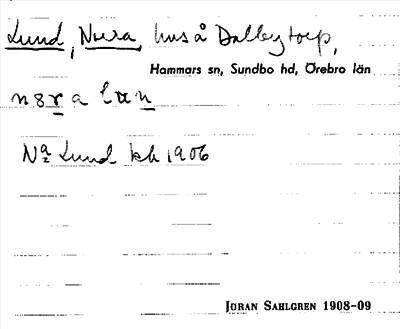 Lund, Nura, hus å Dalbytorp,
Hammars sn, Sundbo hd, Örebro län
Na Lund kh 1906
JÖRAN SAHLGREN 1908-09